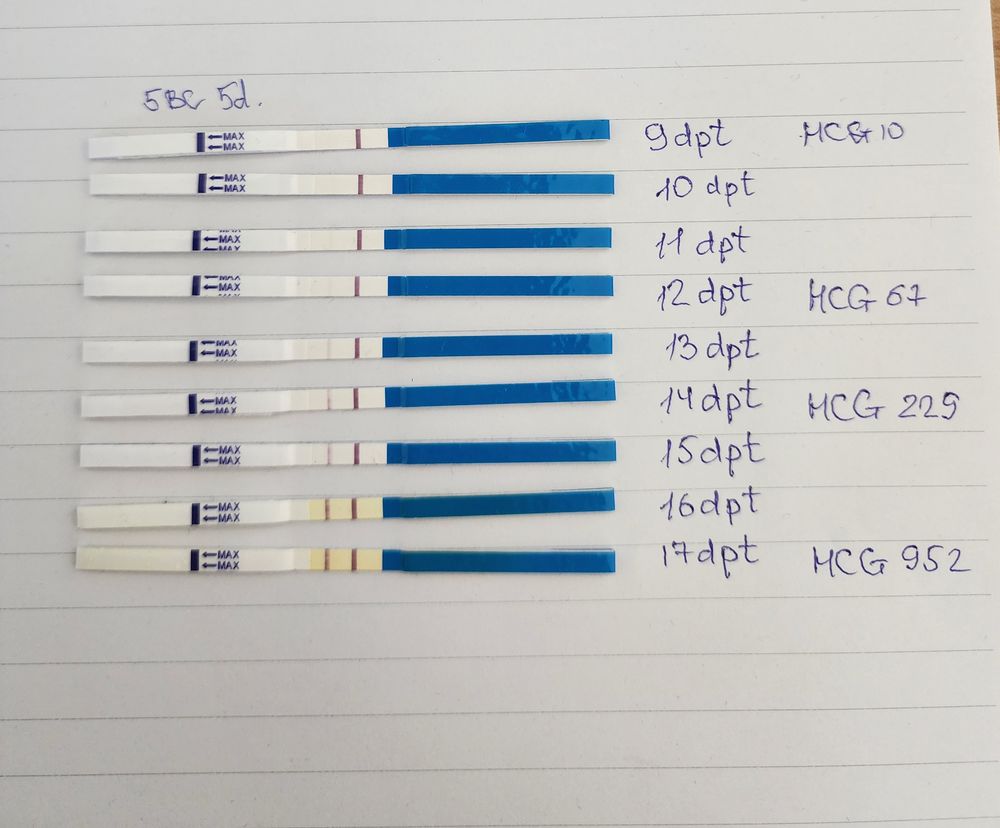 5BC 5d.
←MAX ←MAX 9dpt HCG 10
←MAX ←MAX 10 dpt
MAX ←MAX 11 dpt
MAX ←MAX 12 dpt HCG 67
MAX ←MAX 13 dpt
←MAX ←MAX 14 dpt HCG 229
←MAX ←MAX 15 dpt
←MAX ←MAX 16 dpt
←MAX ←MAX 17 dpt HCG 952